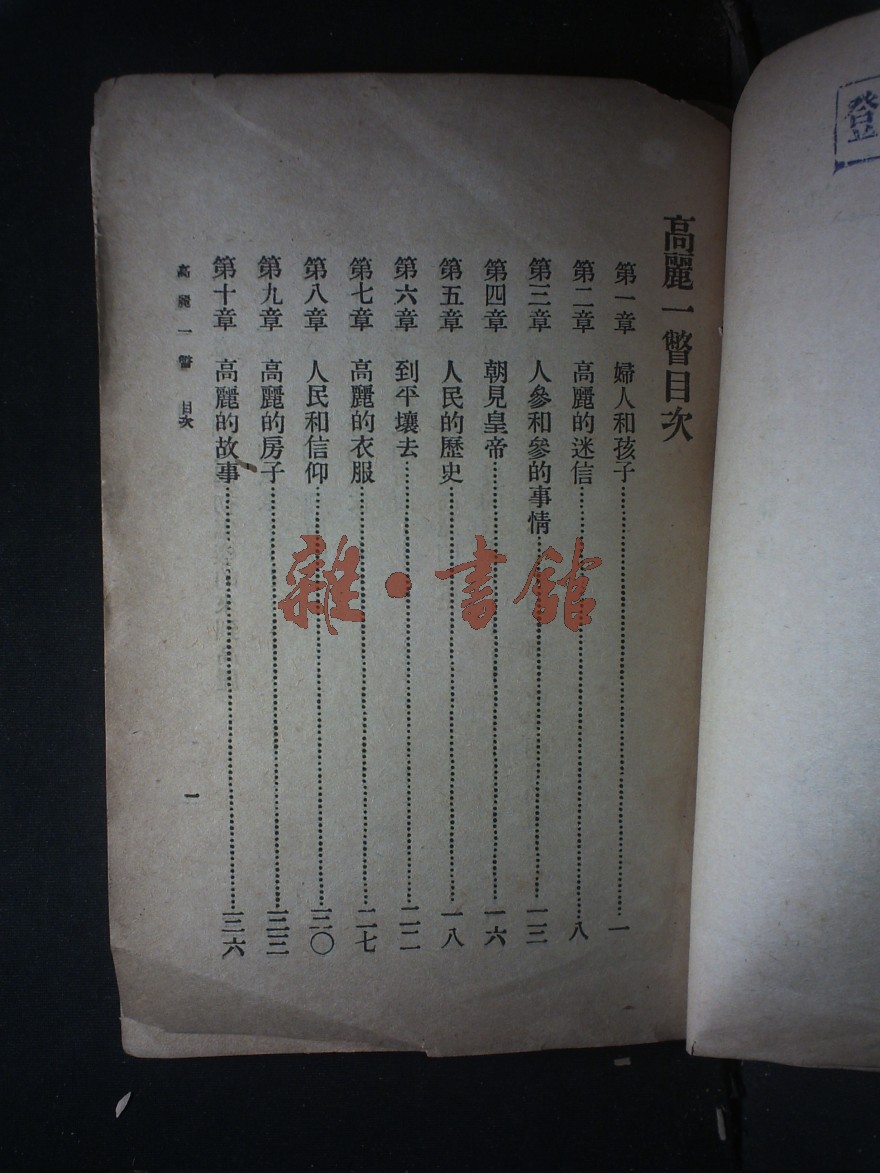 登
高麗一瞥目次
第一章　婦人和孩子……一
第二章　高麗的迷信……八
第三章　人參和參的事情……一三
第四章　朝見皇帝……一六
第五章　人民的歷史……一八
第六章　到平壤去……二二
第七章　高麗的衣服……二七
第八章　人民和信仰……三〇
第九章　高麗的房子……三三
第十章　高麗的故事……三六
高麗一瞥　目次
一
雜·書館